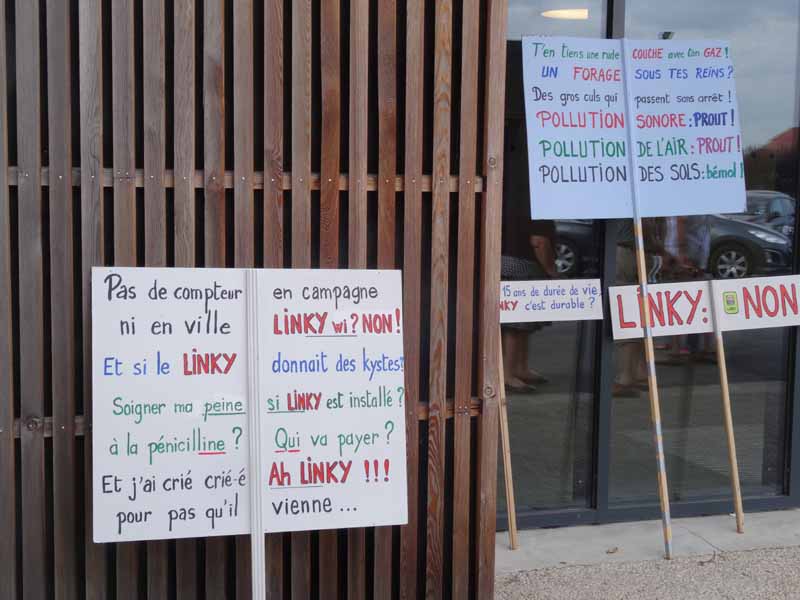 Pas de compteur en campagne
ni en ville LINKY wi? NON!
Et si le LINKY donnait des kystes?
Soigner ma peine si LINKY est installé?
à la pénicilline? Qui va payer?
Et j'ai crié crié-é Ah LINKY !!!
pour pas qu'il vienne ...
T'en tiens une rude COUCHE avec ton GAZ!
UN FORAGE SOUS TES REINS?
Des gros culs qui passent sans arrêt!
POLLUTION SONORE: PROUT!
POLLUTION DE L'AIR: PROUT!
POLLUTION DES SOLS: bémol!
15 ans de durée de vie
NKY c'est durable?
LINKY: NON